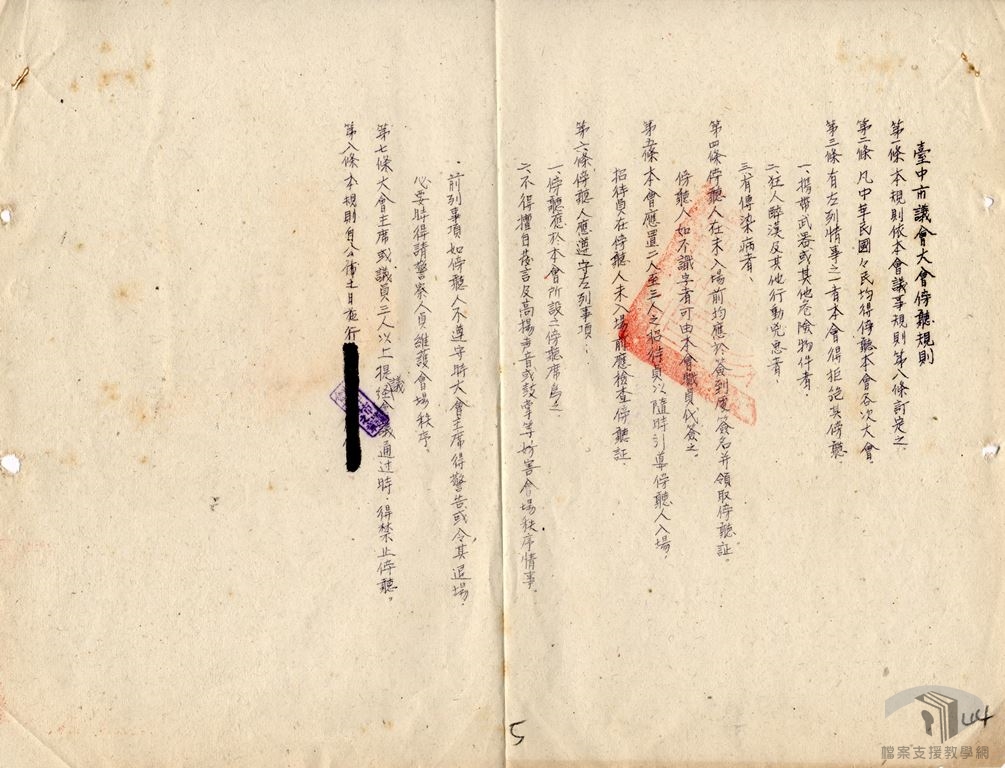 臺中市議會大會傍聽規則
第一條 本規則依本會議事規則第八條訂定之
第二條 凡中華民國々民均得傍聽本會各次大會
第三條 有左列情事之一者本會得拒絕其傍聽
一、携帶武器或其他危險物件者、
二、狂人醉漢及其他行動兇惡者、
三、有傳染病者、
第四條 傍聽人在未入場前均應於簽到處簽名并領取傍聽証。
傍聽人如不識字者可由本會職員代簽之。
第五條 本會應置二人至三人之招待員以隨時引導傍聽人入場、
招待員在傍聽人未入場前應檢查傍聽証、
第六條 傍聽人應遵守左列事項：
一、傍聽應於本會所設之傍聽席為之
二、不得擅自發言及高揚声音或鼓掌等妨害會場秩序情事、
前列事項如傍聽人不遵守時大會主席得警告或令其退場、
必要時得請警察人員維護會場秩序、
第七條 大會主席或議員三人以上提議通过時、得禁止傍聽。
第八條 本規則自公佈之日施行
5
44
檔案支援教學網